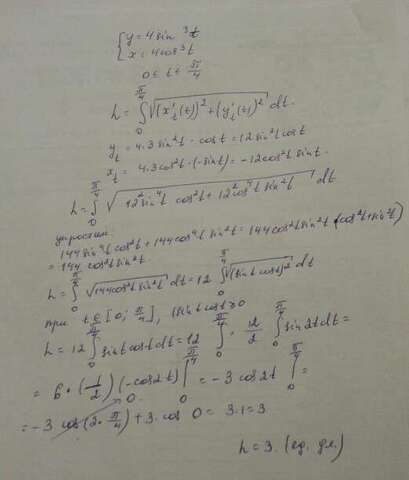 { y = 4 sin³t
x = 4 cos³t
0 ≤ t ≤ π/4
L = ∫₀^{π/4} √((x'ₜ(t))² + (y'ₜ(t))²) dt.
y'ₜ = 4·3 sin²t · cos t = 12 sin²t cos t
x'ₜ = 4·3 cos²t · (-sin t) = -12 cos²t sin t.
L = ∫₀^{π/4} √(12² sin⁴t cos²t + 12² cos⁴t sin²t) dt
упростим:
144 sin⁴t cos²t + 144 cos⁴t sin²t = 144 cos²t sin²t (cos²t + sin²t)
= 144 cos²t sin²t
L = ∫₀^{π/4} √(144 cos²t sin²t) dt = 12 ∫₀^{π/4} √(sin t cos t)² dt
при t ∈ [0; π/4], sin t cos t ≥ 0
L = 12 ∫₀^{π/4} sin t cos t dt = 12/2 ∫₀^{π/4} sin 2t dt =
= 6 · (1/2) (-cos 2t) |₀^{π/4} = -3 cos 2t |₀^{π/4} =
= -3 cos(2 · π/4) + 3 · cos 0 = 3·1 = 3
L = 3. (ед. дл.)